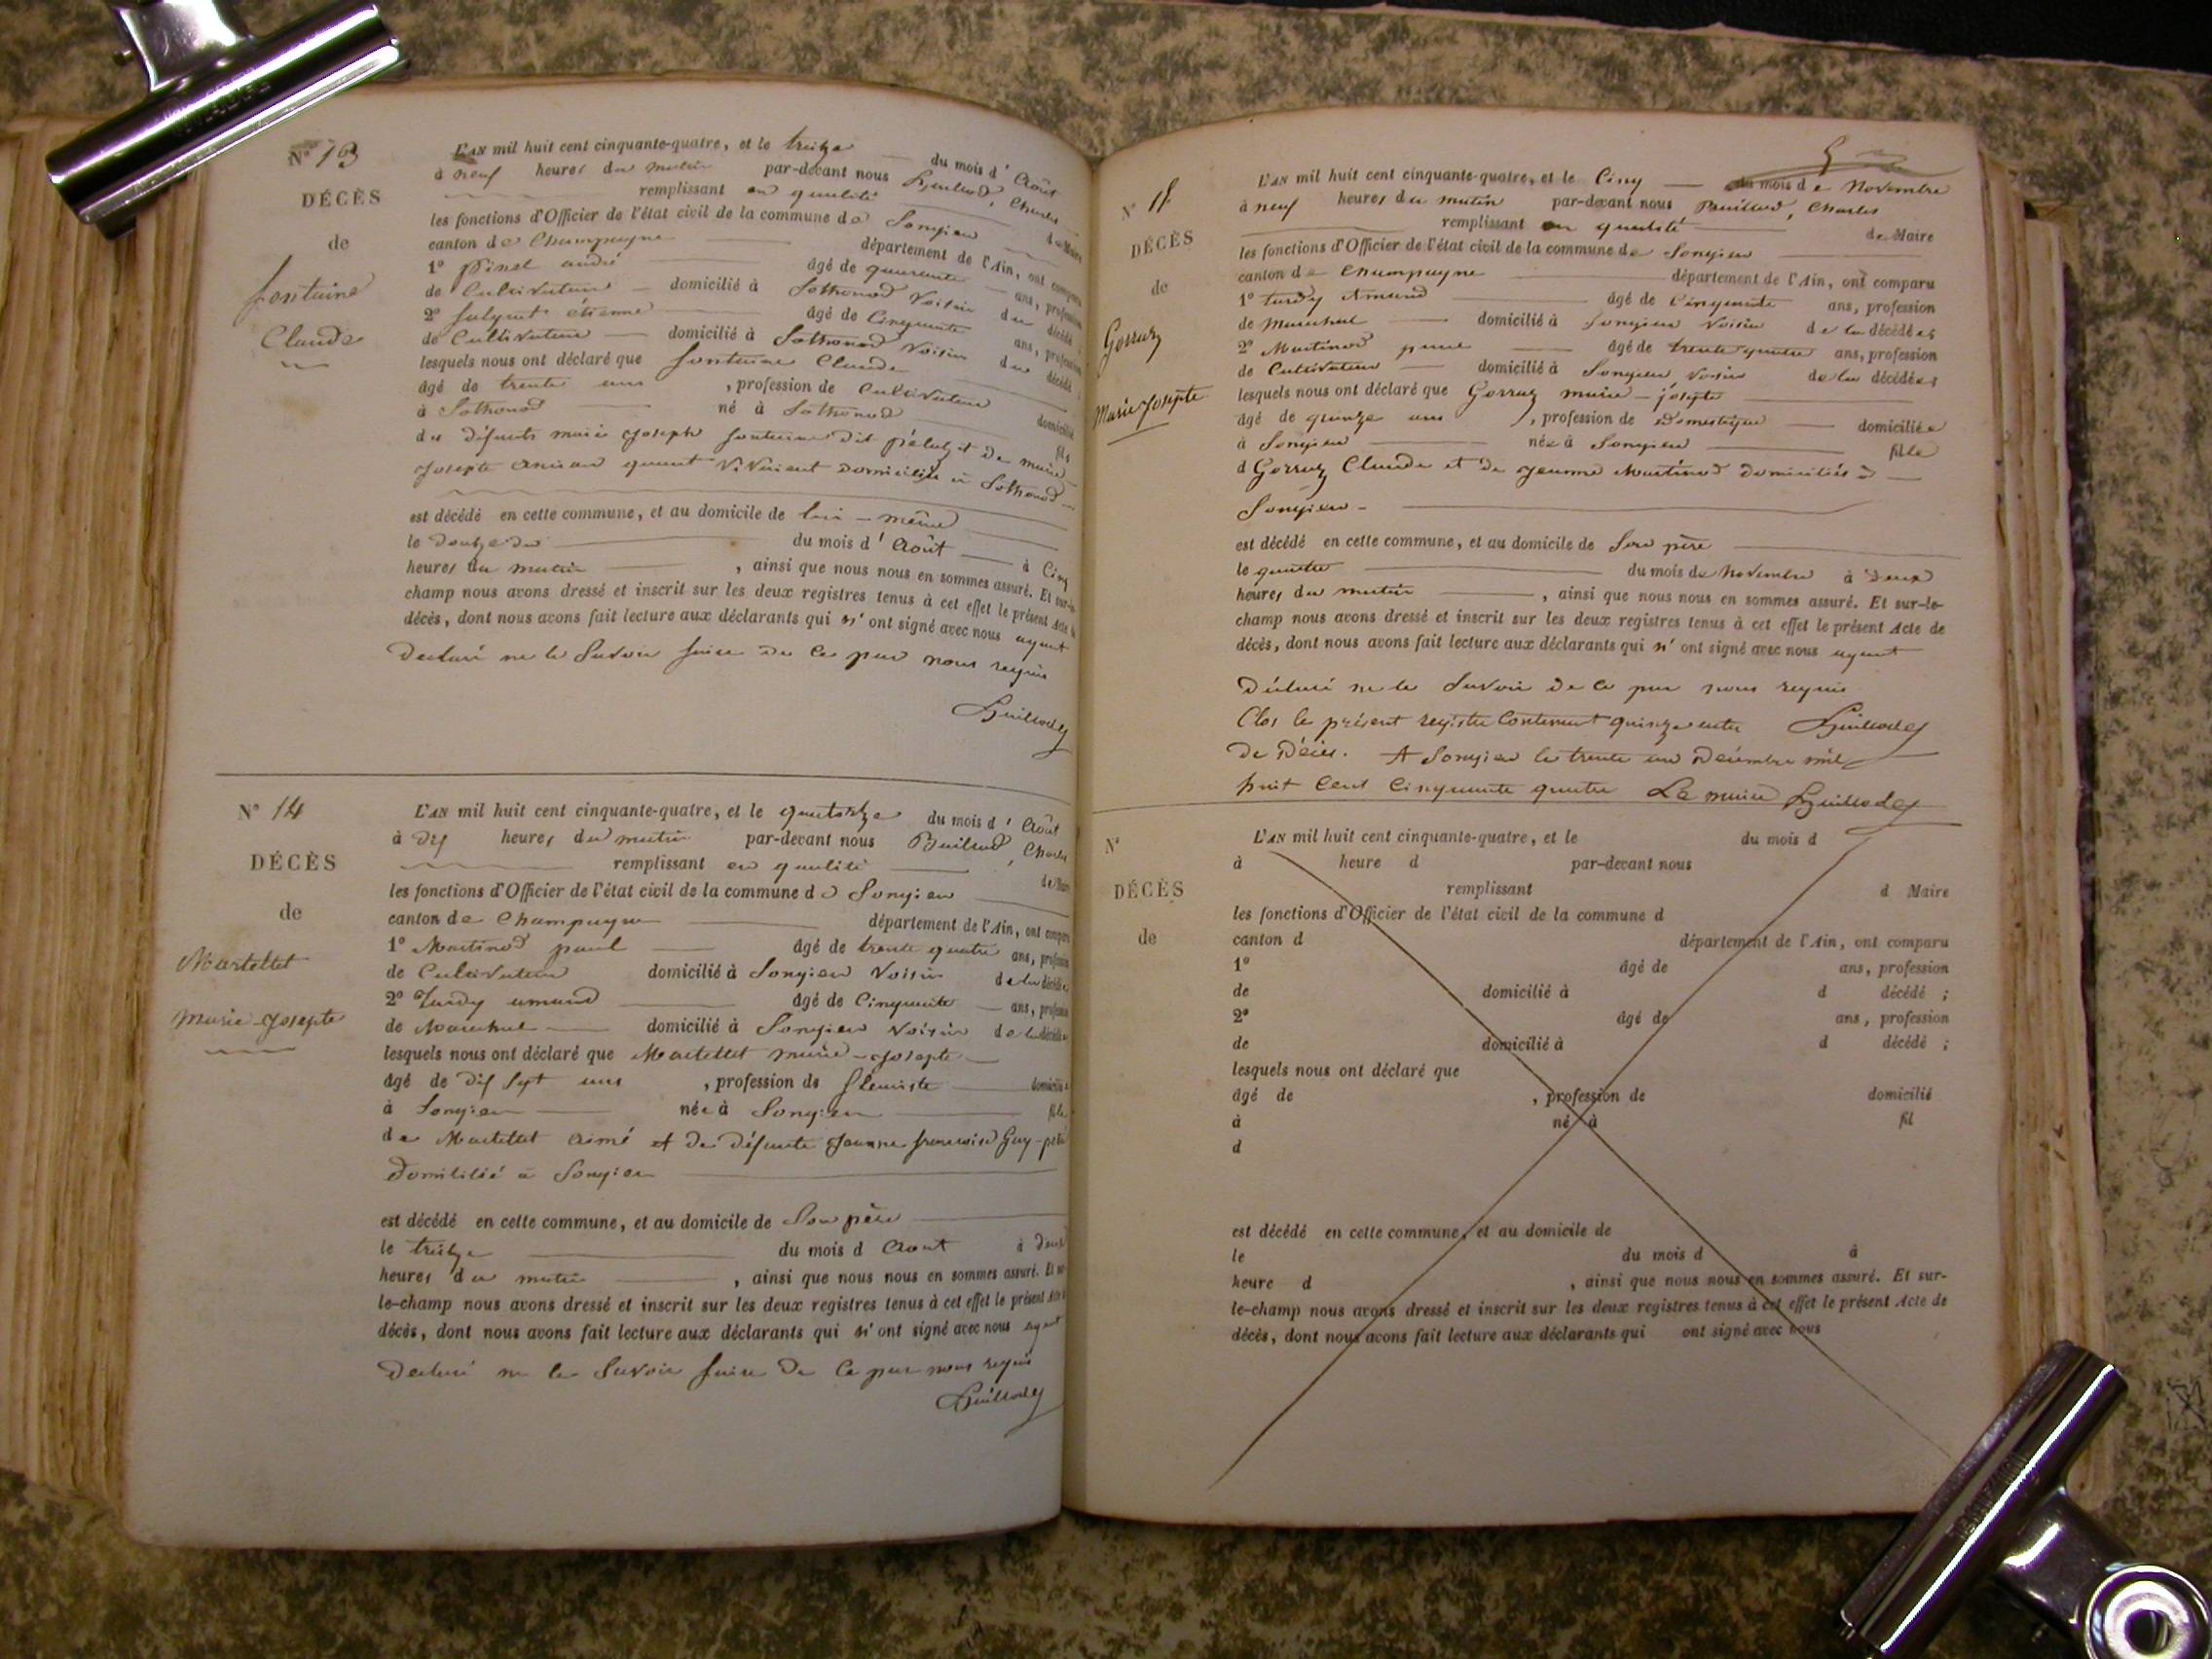 N° 13
DÉCÈS
de
fontaine
Claude
L'AN mil huit cent cinquante-quatre, et le treize du mois d' Août
à neuf heures du matin par-devant nous Charles
remplissant en qualité de Maire
les fonctions d'Officier de l'état civil de la commune de Songieu
canton de Champagne département de l'Ain, ont comparu
1° andré âgé de quarante ans, profession
de Cultivateur domicilié à Sothonod Voisin du décédé ;
2° étienne âgé de Cinquante ans, profession
de Cultivateur domicilié à Sothonod Voisin du décédé ;
lesquels nous ont déclaré que fontaine Claude
âgé de trente ans , profession de Cultivateur domicilié
à Sothonod né à Sothonod fils
des défunts marie joseph fontaine dit et de marie
Josephte quant Vivaient Domiciliés à Sothonod
est décédé en cette commune, et au domicile de lui - même
le Douze du du mois d' Août à Cinq
heures du matin , ainsi que nous nous en sommes assuré. Et sur-le-
champ nous avons dressé et inscrit sur les deux registres tenus à cet effet le présent Acte de
décès, dont nous avons fait lecture aux déclarants qui n' ont signé avec nous ayant
Déclaré ne le Savoir faire de ce par nous requis
N° 14
DÉCÈS
de
Martettet
Marie-Josephte
L'AN mil huit cent cinquante-quatre, et le quatorze du mois d' Août
à dix heures du matin par-devant nous Charles
remplissant en qualité de Maire
les fonctions d'Officier de l'état civil de la commune de Songieu
canton de Champagne département de l'Ain, ont comparu
1° Martinod paul âgé de trente quatre ans, profession
de Cultivateur domicilié à Songieu Voisin de la décédée
2° Tardy amand âgé de Cinquante ans, profession
de Marechal domicilié à Songieu Voisin de la décédée
lesquels nous ont déclaré que Martettet marie-Josephte
âgé de dix sept ans , profession de fleuriste domiciliée
à Songieu née à Songieu fille
de Martettet aimé et de défunte Jeanne Guy-
Domicilié à Songieu
est décédé en cette commune, et au domicile de Son père
le treize du mois d Aout à deux
heures du matin , ainsi que nous nous en sommes assuré. Et sur-
le-champ nous avons dressé et inscrit sur les deux registres tenus à cet effet le présent Acte de
décès, dont nous avons fait lecture aux déclarants qui n' ont signé avec nous ayant
Déclaré ne le Savoir faire de ce par nous requis
DÉCÈS
de
Gorruz
Marie Josephte
L'AN mil huit cent cinquante-quatre, et le Cinq du mois de Novembre
à neuf heures du matin par-devant nous Charles
remplissant en qualité de Maire
les fonctions d'Officier de l'état civil de la commune de Songieu
canton de Champagne département de l'Ain, ont comparu
1° tardy Amand âgé de Cinquante ans, profession
de Marechal domicilié à Songieu Voisin de la décédée ;
2° Martinod âgé de trente quatre ans, profession
de Cultivateur domicilié à Songieu Voisin de la décédée ;
lesquels nous ont déclaré que Gorruz marie-josephte
âgé de quinze ans , profession de Domestique domiciliée
à Songieu née à Songieu fille
d Gorruz Claude et de Jeanne Martinod domiciliés à
Songieu
est décédé en cette commune, et au domicile de Son père
le quatre du mois de Novembre à Deux
heures du matin , ainsi que nous nous en sommes assuré. Et sur-le-
champ nous avons dressé et inscrit sur les deux registres tenus à cet effet le présent Acte de
décès, dont nous avons fait lecture aux déclarants qui n' ont signé avec nous ayant
Déclaré ne le Savoir de ce par nous requis
Clos le présent registre Contenant quinze actes
de Décès. A Songieu le trente un Décembre mil
huit Cent Cinquante quatre Le maire
N°
DÉCÈS
de
L'AN mil huit cent cinquante-quatre, et le du mois d
à heure d par-devant nous
remplissant d Maire
les fonctions d'Officier de l'état civil de la commune d
canton d département de l'Ain, ont comparu
1° âgé de ans, profession
de domicilié à d décédé ;
2° âgé de ans, profession
de domicilié à d décédé ;
lesquels nous ont déclaré que
âgé de , profession de domicilié
à né à fil
d
est décédé en cette commune, et au domicile de
le du mois d à
heure d , ainsi que nous nous en sommes assuré. Et sur-
le-champ nous avons dressé et inscrit sur les deux registres tenus à cet effet le présent Acte de
décès, dont nous avons fait lecture aux déclarants qui ont signé avec nous